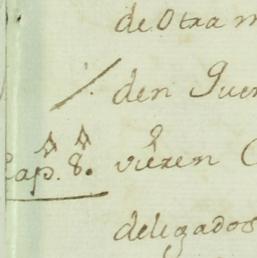 de Otra m
den Guer
Cap. 8. vieren C
delegados